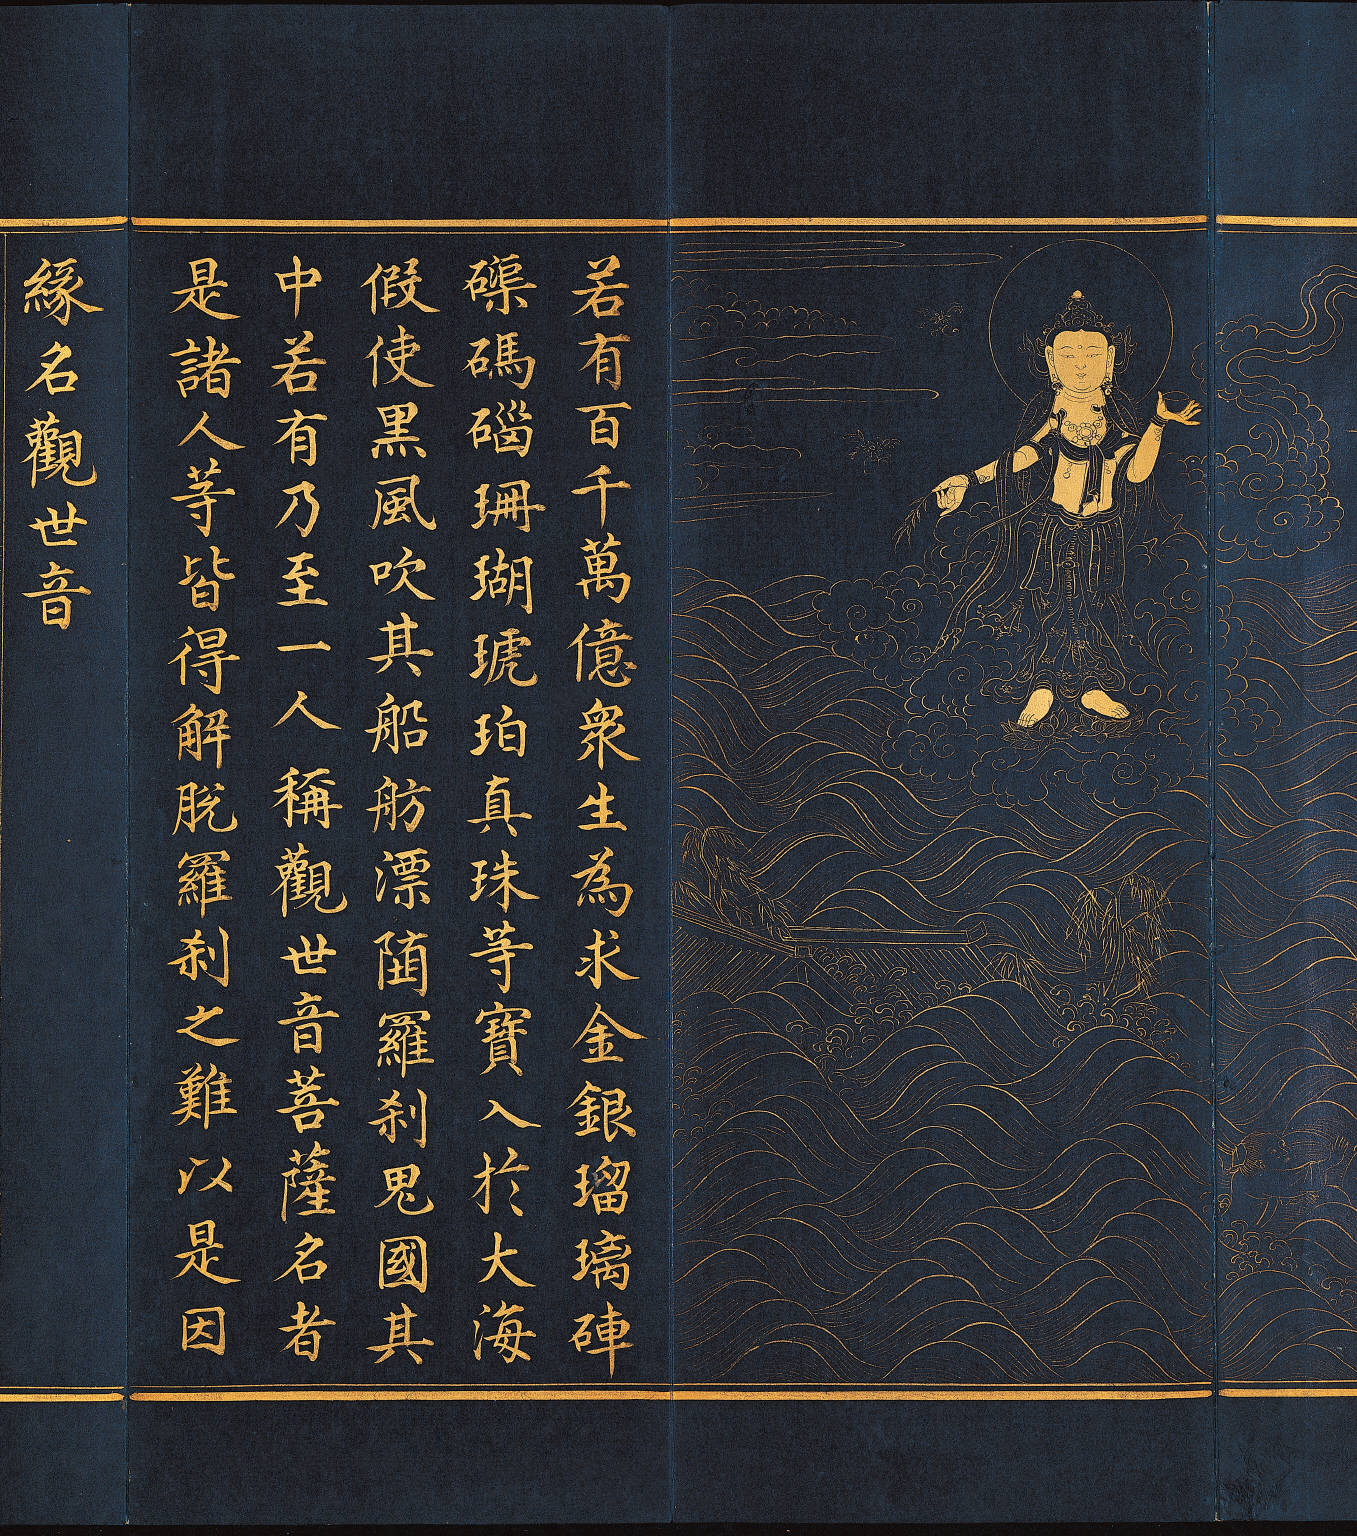 若有百千萬億衆生為求金銀瑠璃硨
磲碼碯珊瑚琥珀真珠等寶入於大海
假使黑風吹其船舫漂墮羅刹鬼國其
中若有乃至一人稱觀世音菩薩名者
是諸人等皆得解脫羅刹之難以是因
緣名觀世音